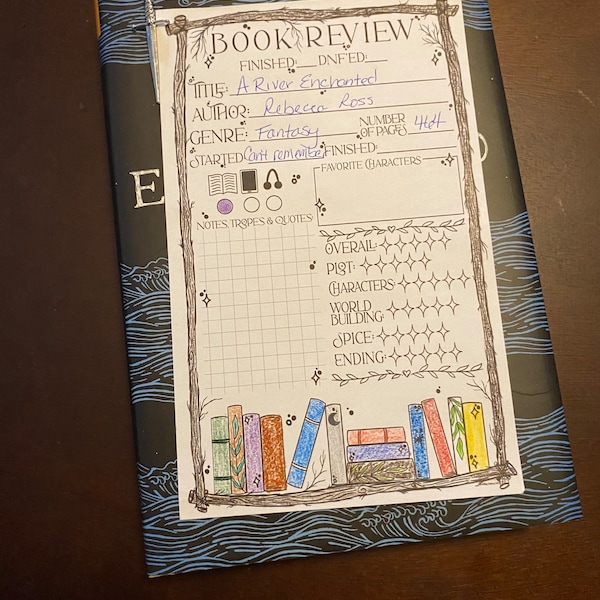 BOOK REVIEW
FINISHED: DNF'ED:
TITLE: A River Enchanted
AUTHOR: Rebecca Ross
GENRE: Fantasy NUMBER OF PAGES 464
STARTED Can't remember FINISHED:
FAVORITE CHARACTERS
NOTES, TROPES & QUOTES:
OVERALL:
PLOT:
CHARACTERS:
WORLD
BUILDING:
SPICE:
ENDING:
E